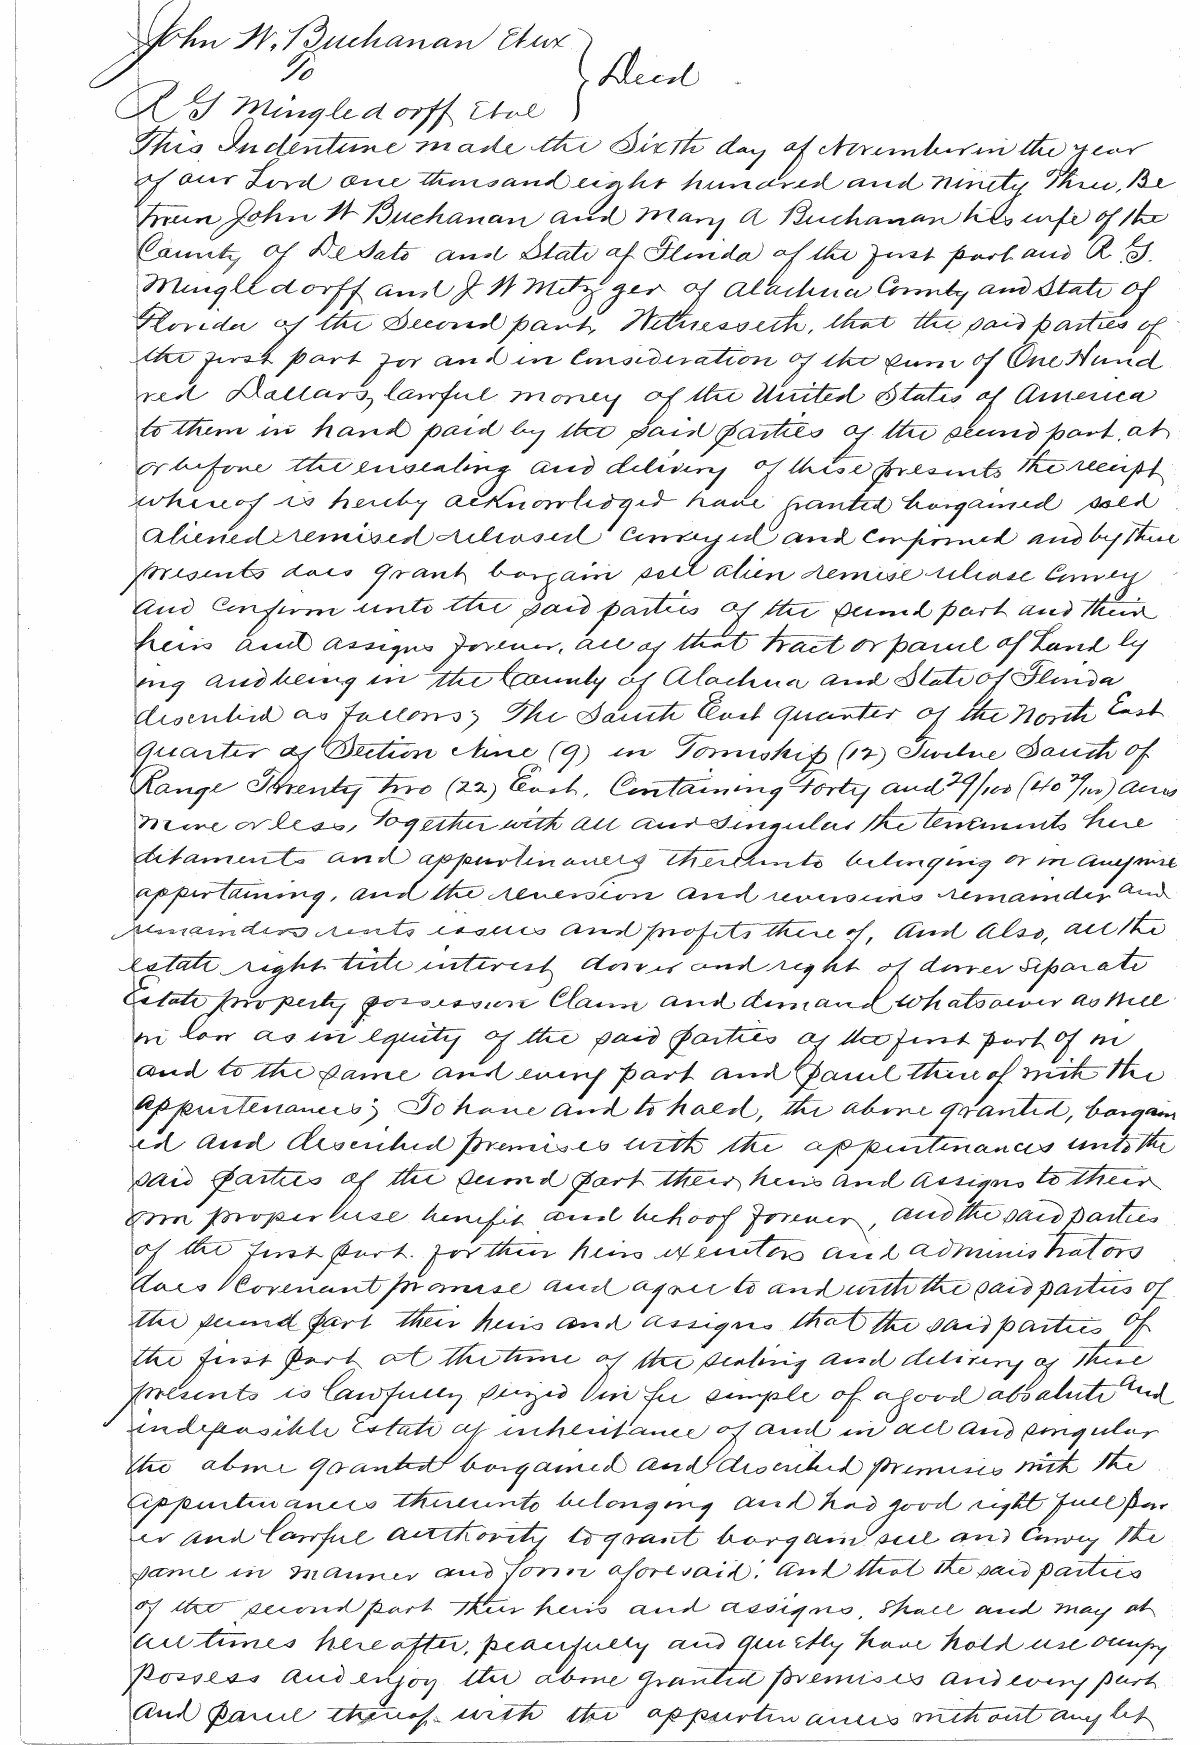 John W. Buchanan Etux
To
Deed
R G Mingledorff Etal
This Indenture made the Sixth day of November in the year
of our Lord one thousand eight hundred and ninety Three, Be
tween John W Buchanan and Mary A Buchanan his wife of the
County of DeSoto and State of Florida of the first part and R G.
Mingledorff and J W Metzger of Alachua County and State of
Florida of the Second part, Witnesseth, that the said parties of
the first part for and in Consideration of the sum of One Hund
red Dollars, lawful money of the United States of America
to them in hand paid by the said parties of the second part, at
or before the ensealing and delivery of these presents the receipt
whereof is hereby acknowledged have granted bargained sold
aliened remised released conveyed and confirmed and by these
presents does grant bargain sell alien remise release Convey
and Confirm unto the said parties of the second part and their
heirs and assigns forever, all of that tract or parcel of Land ly
ing and being in the County of Alachua and State of Florida
described as follows; The South East quarter of the North East
quarter of Section Nine (9) in Township (12) Twelve South of
Range Twenty two (22) East, Containing Forty and 29/100 (40 29/100) acres
more or less, Together with all and singular the tenements here
ditaments and appurtinances thereunto belonging or in anywise
appertaining, and the reversion and reversions remainder and
remainders rents issues and profits there of, And Also, all the
estate right title interest dower and right of dower separate
Estate property possession Claim and demand whatsoever as well
in law as in equity of the said parties of the first part of in
and to the same and every part and parcel there of with the
appurtenances; To have and to hold, the above granted, bargain
ed and described premises with the appurtinances unto the
said parties of the second part their heirs and assigns to their
own proper use benefit and behoof forever, and the said parties
of the first part. for their heirs executors and administrators
does Covenant promise and agree to and with the said parties of
the second part their heirs and assigns that the said parties of
the first part at the time of the sealing and delivery of these
presents is lawfully seized in fee simple of a good absolute and
indefeasible Estate of inheritance of and in all and singular
the above granted bargained and described premises with the
appurtinances thereunto belonging and had good right full pow
er and lawful authority to grant bargain sell and Convey the
same in manner and form aforesaid: and that the said parties
of the second part their heirs and assigns, shall and may at
all times hereafter, peacefully and quietly have hold use occupy
possess and enjoy the above granted premises and every part
and parcel thereof with the appurtinances without any let